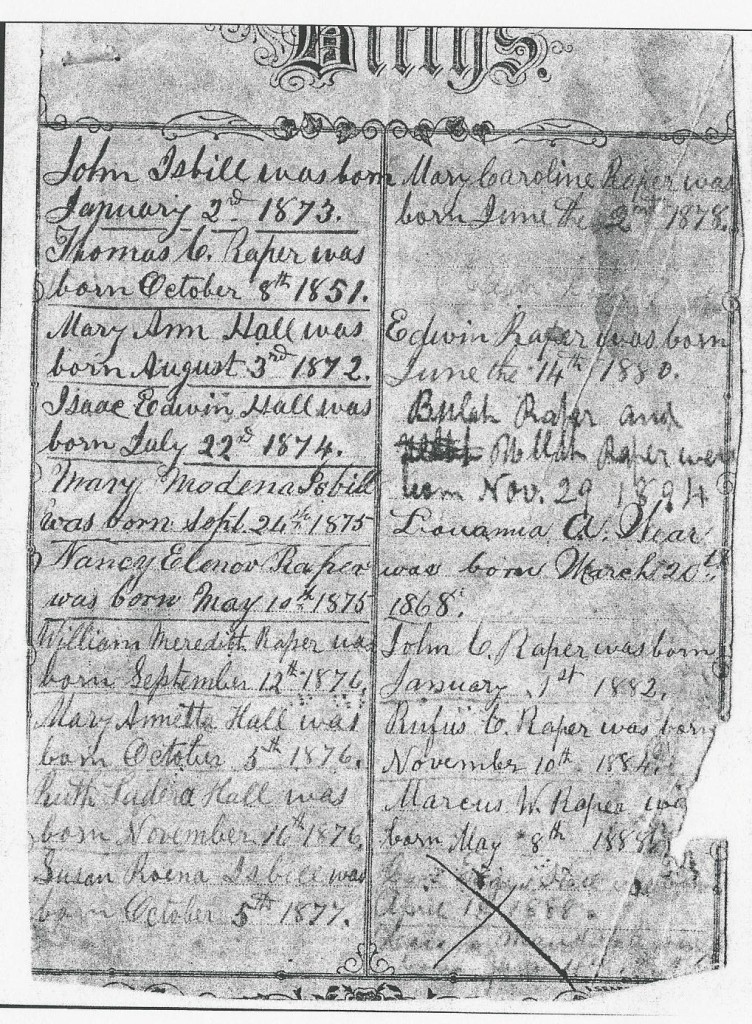 Births.
John Isbill was born
January 2nd 1873.
Thomas C. Raper was
born October 8th 1851.
Mary Ann Hall was
born August 3rd 1872.
Isaac Edwin Hall was
born July 22d 1874.
Mary Modena Isbill
was born Sept. 24th 1875
Nancy Elenor Raper
was born May 10th 1875
William Meredith Raper was
born September 12th 1876.
Mary Annetta Hall was
born October 5th 1876.
Ruth Hall was
born November 16th 1876.
Susan Roena Isbill was
born October 5th 1877.
Mary Caroline Raper was
born June the 2nd 1878.
Edwin Raper was born
June the 14th 1880.
Bulah Raper and
Raper were
born Nov. 29 1894
Louanna A.
was born March 20th
1868.
John C. Raper was born
January 1st 1882.
Rufus C. Raper was born
November 10th 1884.
Marcus W. Raper was
born May 8th 1888
April 1888.